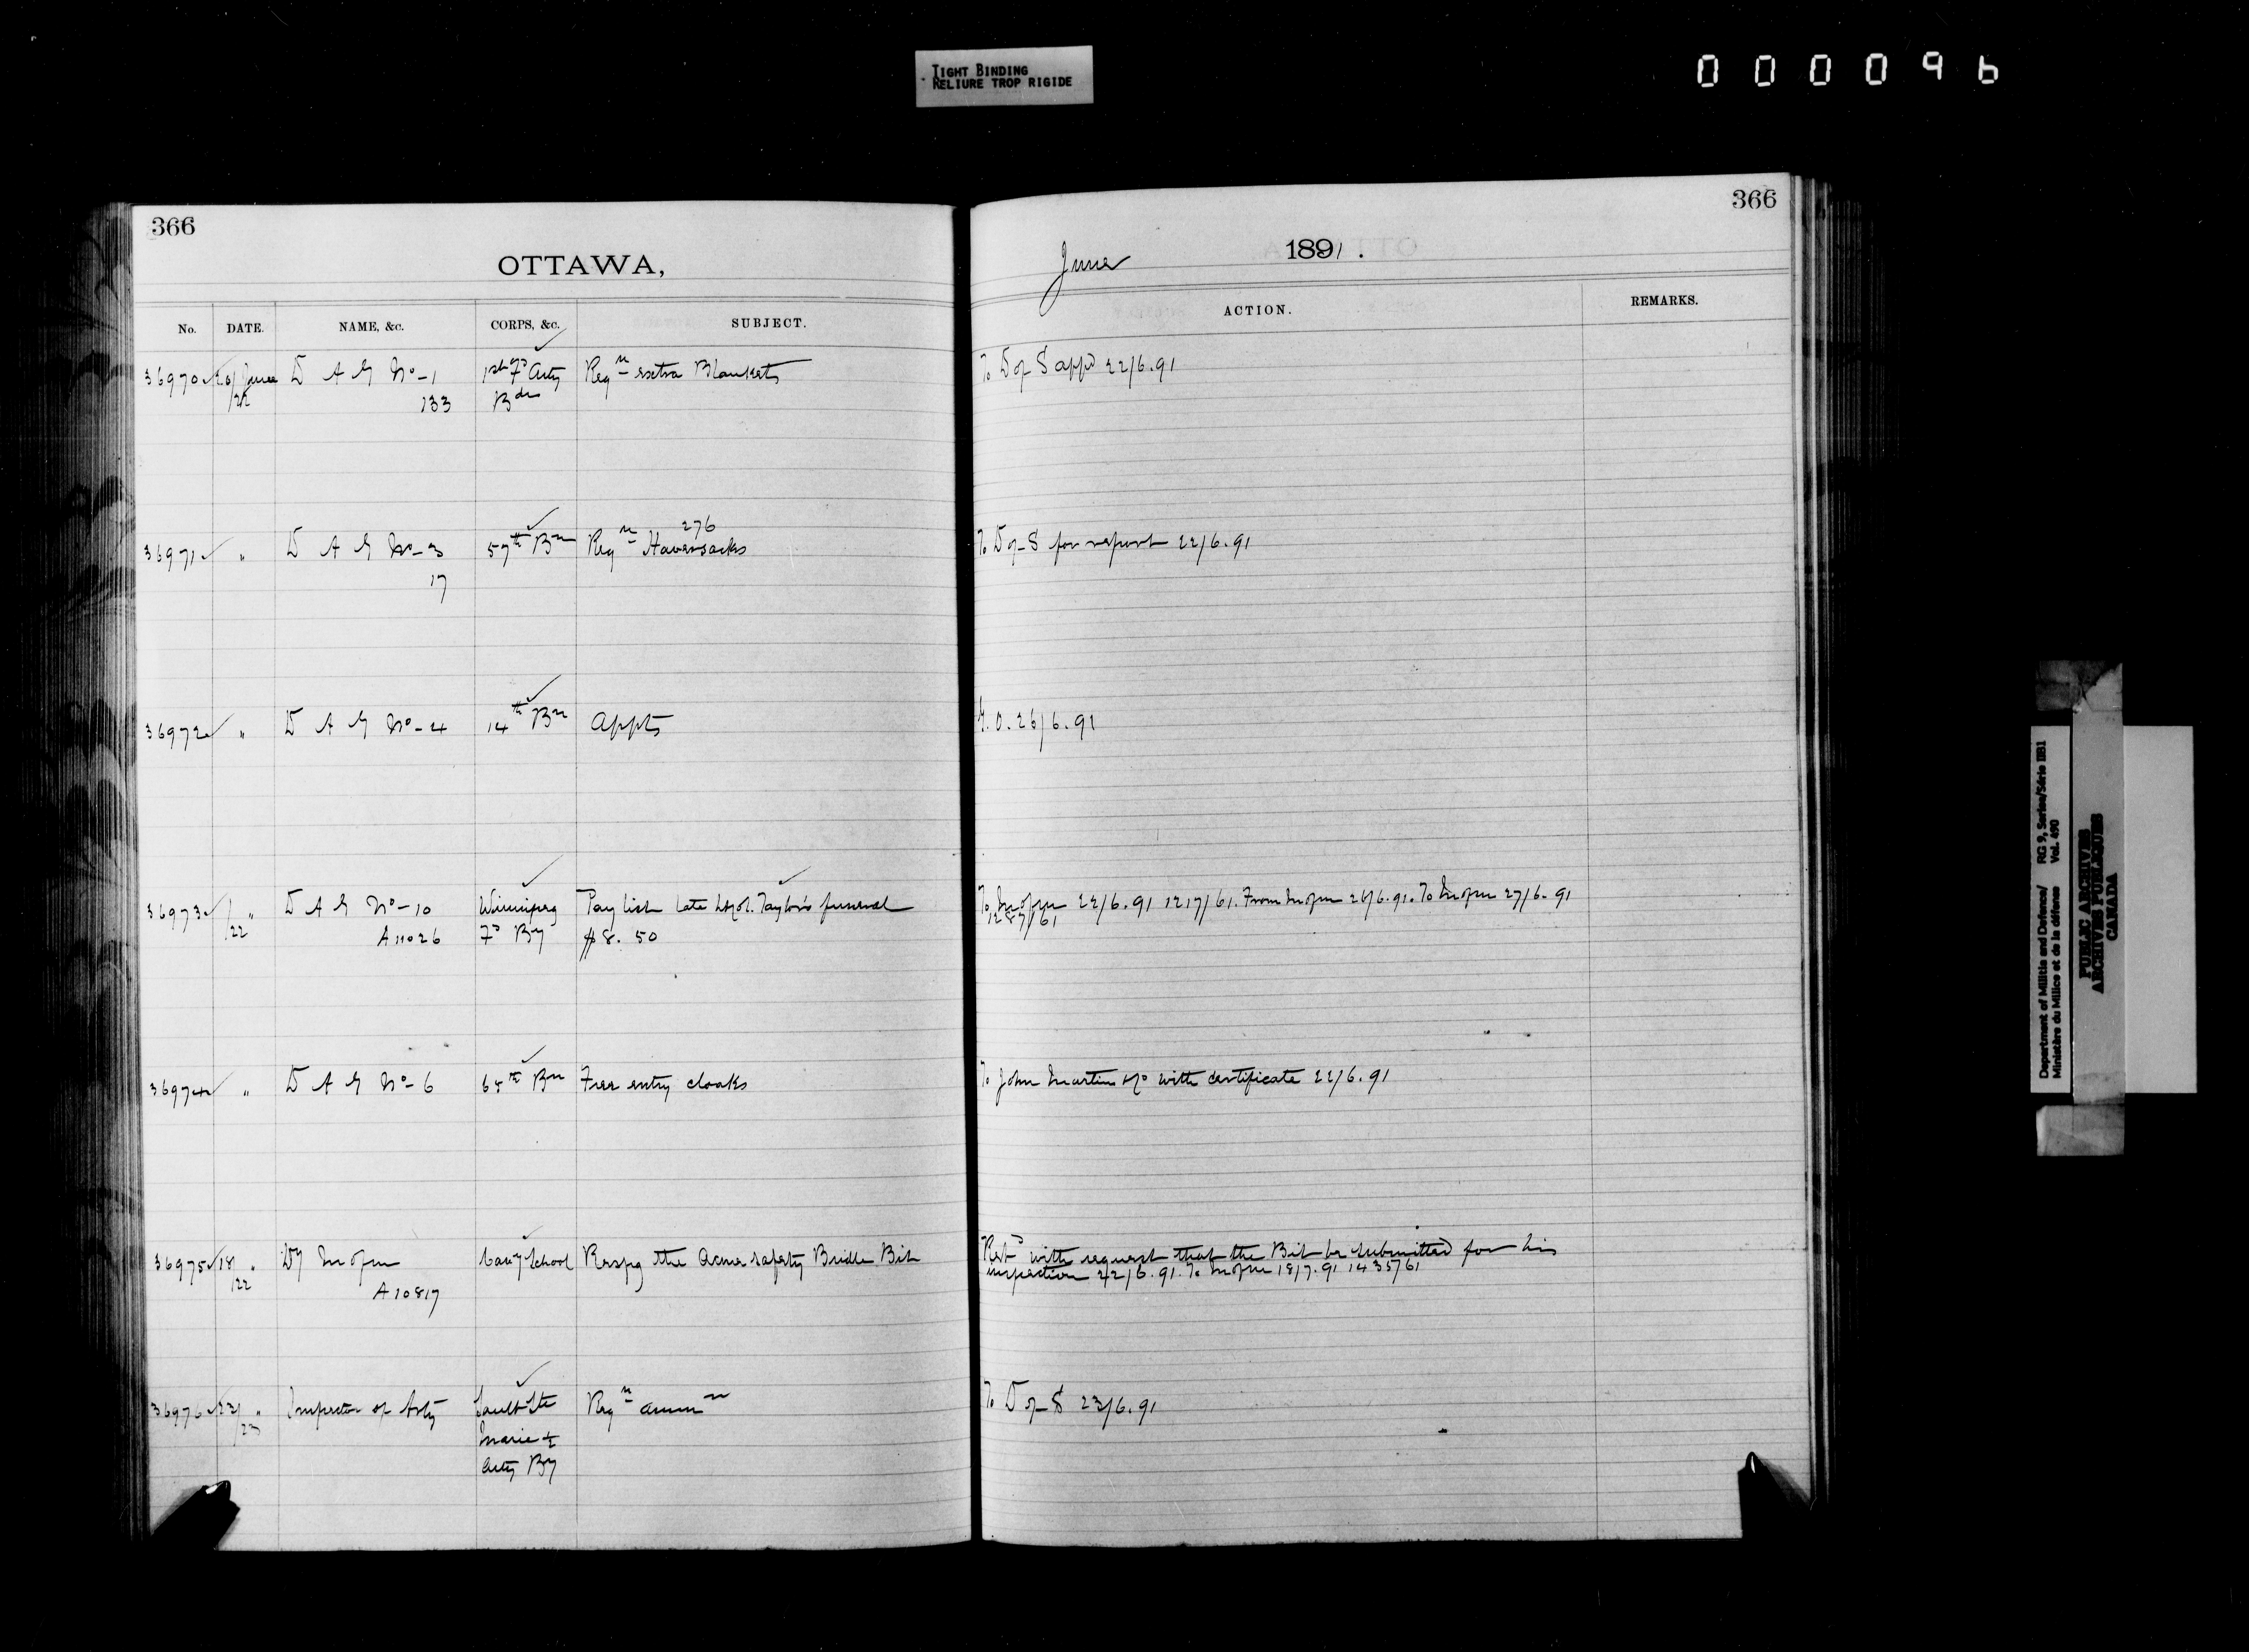 TIGHT BINDING
RELIURE TROP RIGIDE
000096
366
OTTAWA,
No. DATE. NAME, &c. CORPS, &c. SUBJECT.
36970 20/June D A G No-1 1st Fd Arty Reqn extra Blankets
/22 133 Bde
276
36971 " D A G No-3 57th Bn Reqn Haversacks
17
36972 " D A G No-4 14th Bn Appts
36973 / " D A G No-10 Winnipeg Pay list late Lt Col. Taylor's funeral
/22 A11026 Fd By $8.50
36974 " D A G No-6 65th Bn Free entry cloaks
36975 18 " Dy M of M Cavy School Respg the Acme safety Bridle Bit
/22 A10817
36976 22/ " Inspector of Arty Sault Ste Reqn ammn
/23 Marie ½
Arty By
366
June 1891.
ACTION. REMARKS.
To D of S appd 22/6.91
To D of S for report 22/6.91
G.O. 26/6.91
To M of M 22/6.91 1217/61. From M of M 26/6.91. To M of M 27/6.91
1287/61
To John Martin &Co with certificate 22/6.91
Retd with request that the Bit be submitted for his
inspection 22/6.91. To M of M 18/7.91 1435/61
To D of S 23/6.91
Department of Militia and Defence/ RG 9, Series/Série IIB1
Ministère du Milice et de la défense Vol. 490
PUBLIC ARCHIVES
ARCHIVES PUBLIQUES
CANADA